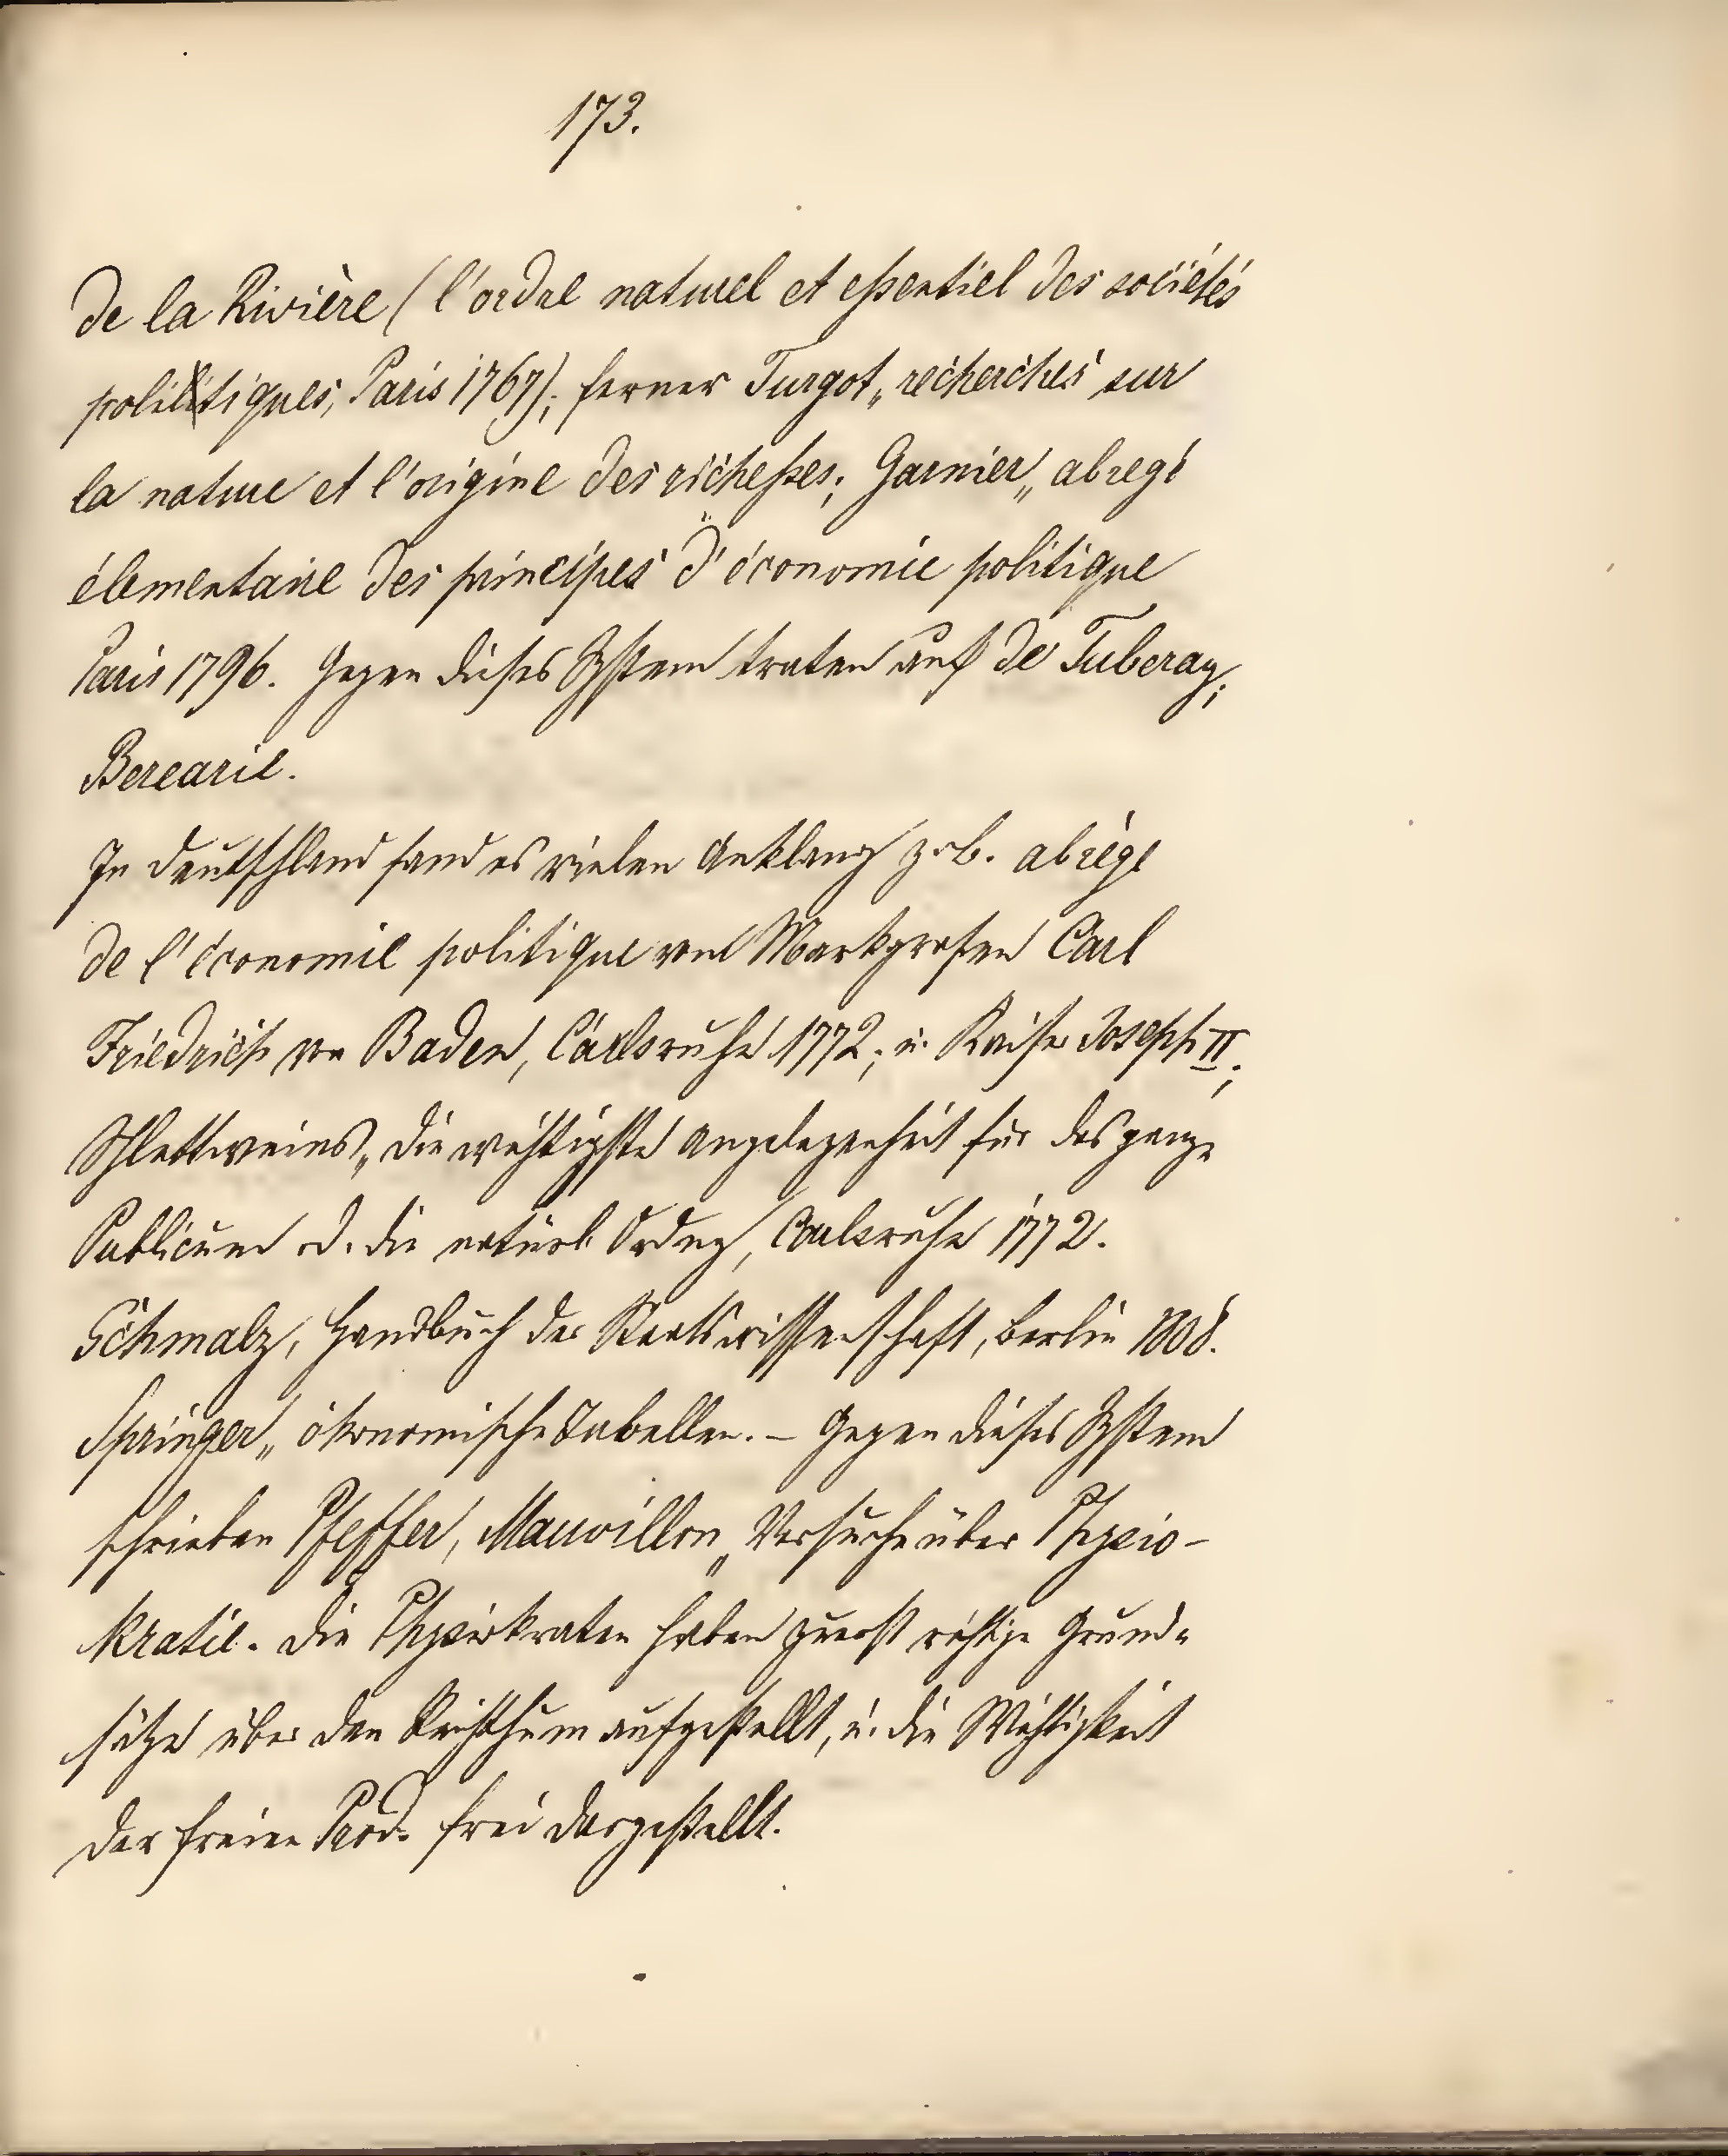 173.
de la Rivière (l'ordre naturel et essentiel des sociétés
politiques, Paris 1767); ferner Turgot „recherches sur
la nature et l'origine des richesses; Garnier „abregé
élementaire des principes d'économie politique
Paris 1796. Gegen dieses System traten auf de Tuberay;
Berearie.
In Deutschland fand es vielen Anklang z. b. abrégé
de l'économie politique vom Markgrafen Carl
Friedrich von Baden, Carlsruhe 1772; u. Kaiser Joseph II;
Schlettweins „die wichtigste Angelegenheit für das ganze
Publicum od. die natürl. Ordng, Carlsruhe 1772.
Schmalz, Handbuch der Staatswissenschaft, Berlin 1808.
Springer „ökonomische Tabellen. – Gegen dieses System
schrieben Pfeffer, Mauvillon „Versuche über Physio-
kratie. Die Physiokraten haben zuerst richtige Grund-
sätze über den Reichthum aufgestellt, u. die Wichtigkeit
der freien Prod. frei dargestellt.